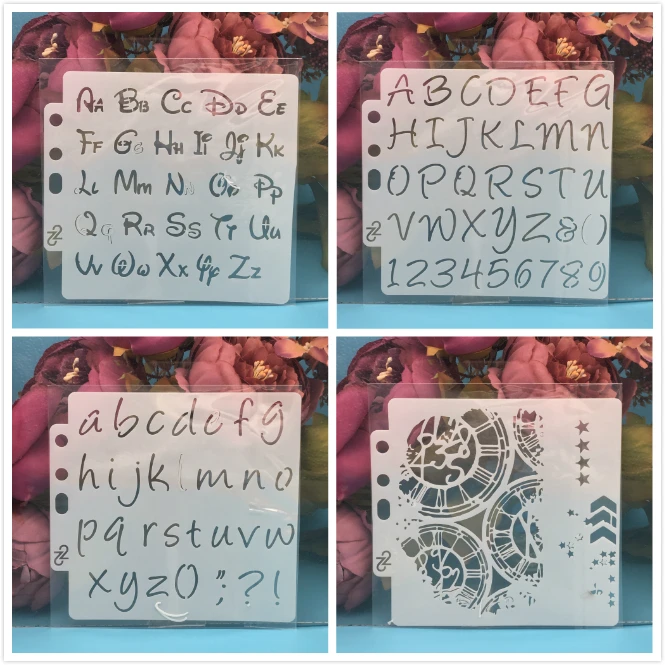 Aa Bb Cc Dd Ee
Ff Gg Hh Ii Jj Kk
Ll Mm Nn Oo Pp
Qq Rr Ss Tt Uu
Vv Ww Xx Yy Zz
ABCDEFG
HIJKLMN
OPQRSTU
VWXYZ&()
123456789
abcdefg
hijklmno
pqrstuvw
xyz()";?!